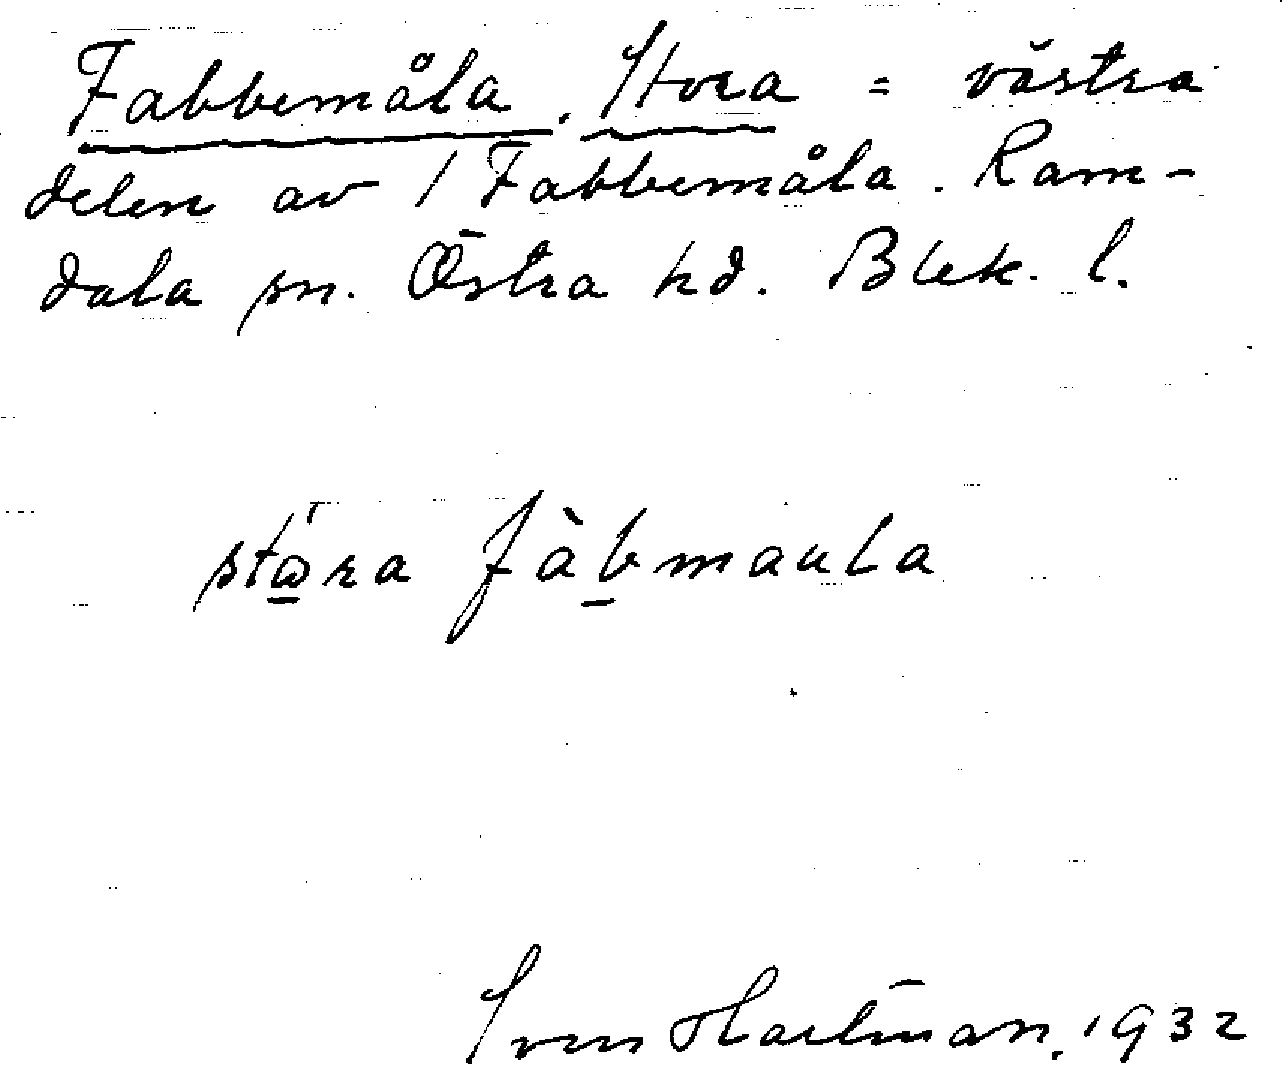 Fabbemåla, Stora = västra
delen av 1 Fabbemåla. Ram-
dala sn. Östra hd. Blek. l.
stω̲ra fàb̲maula
Sven Hartman, 1932